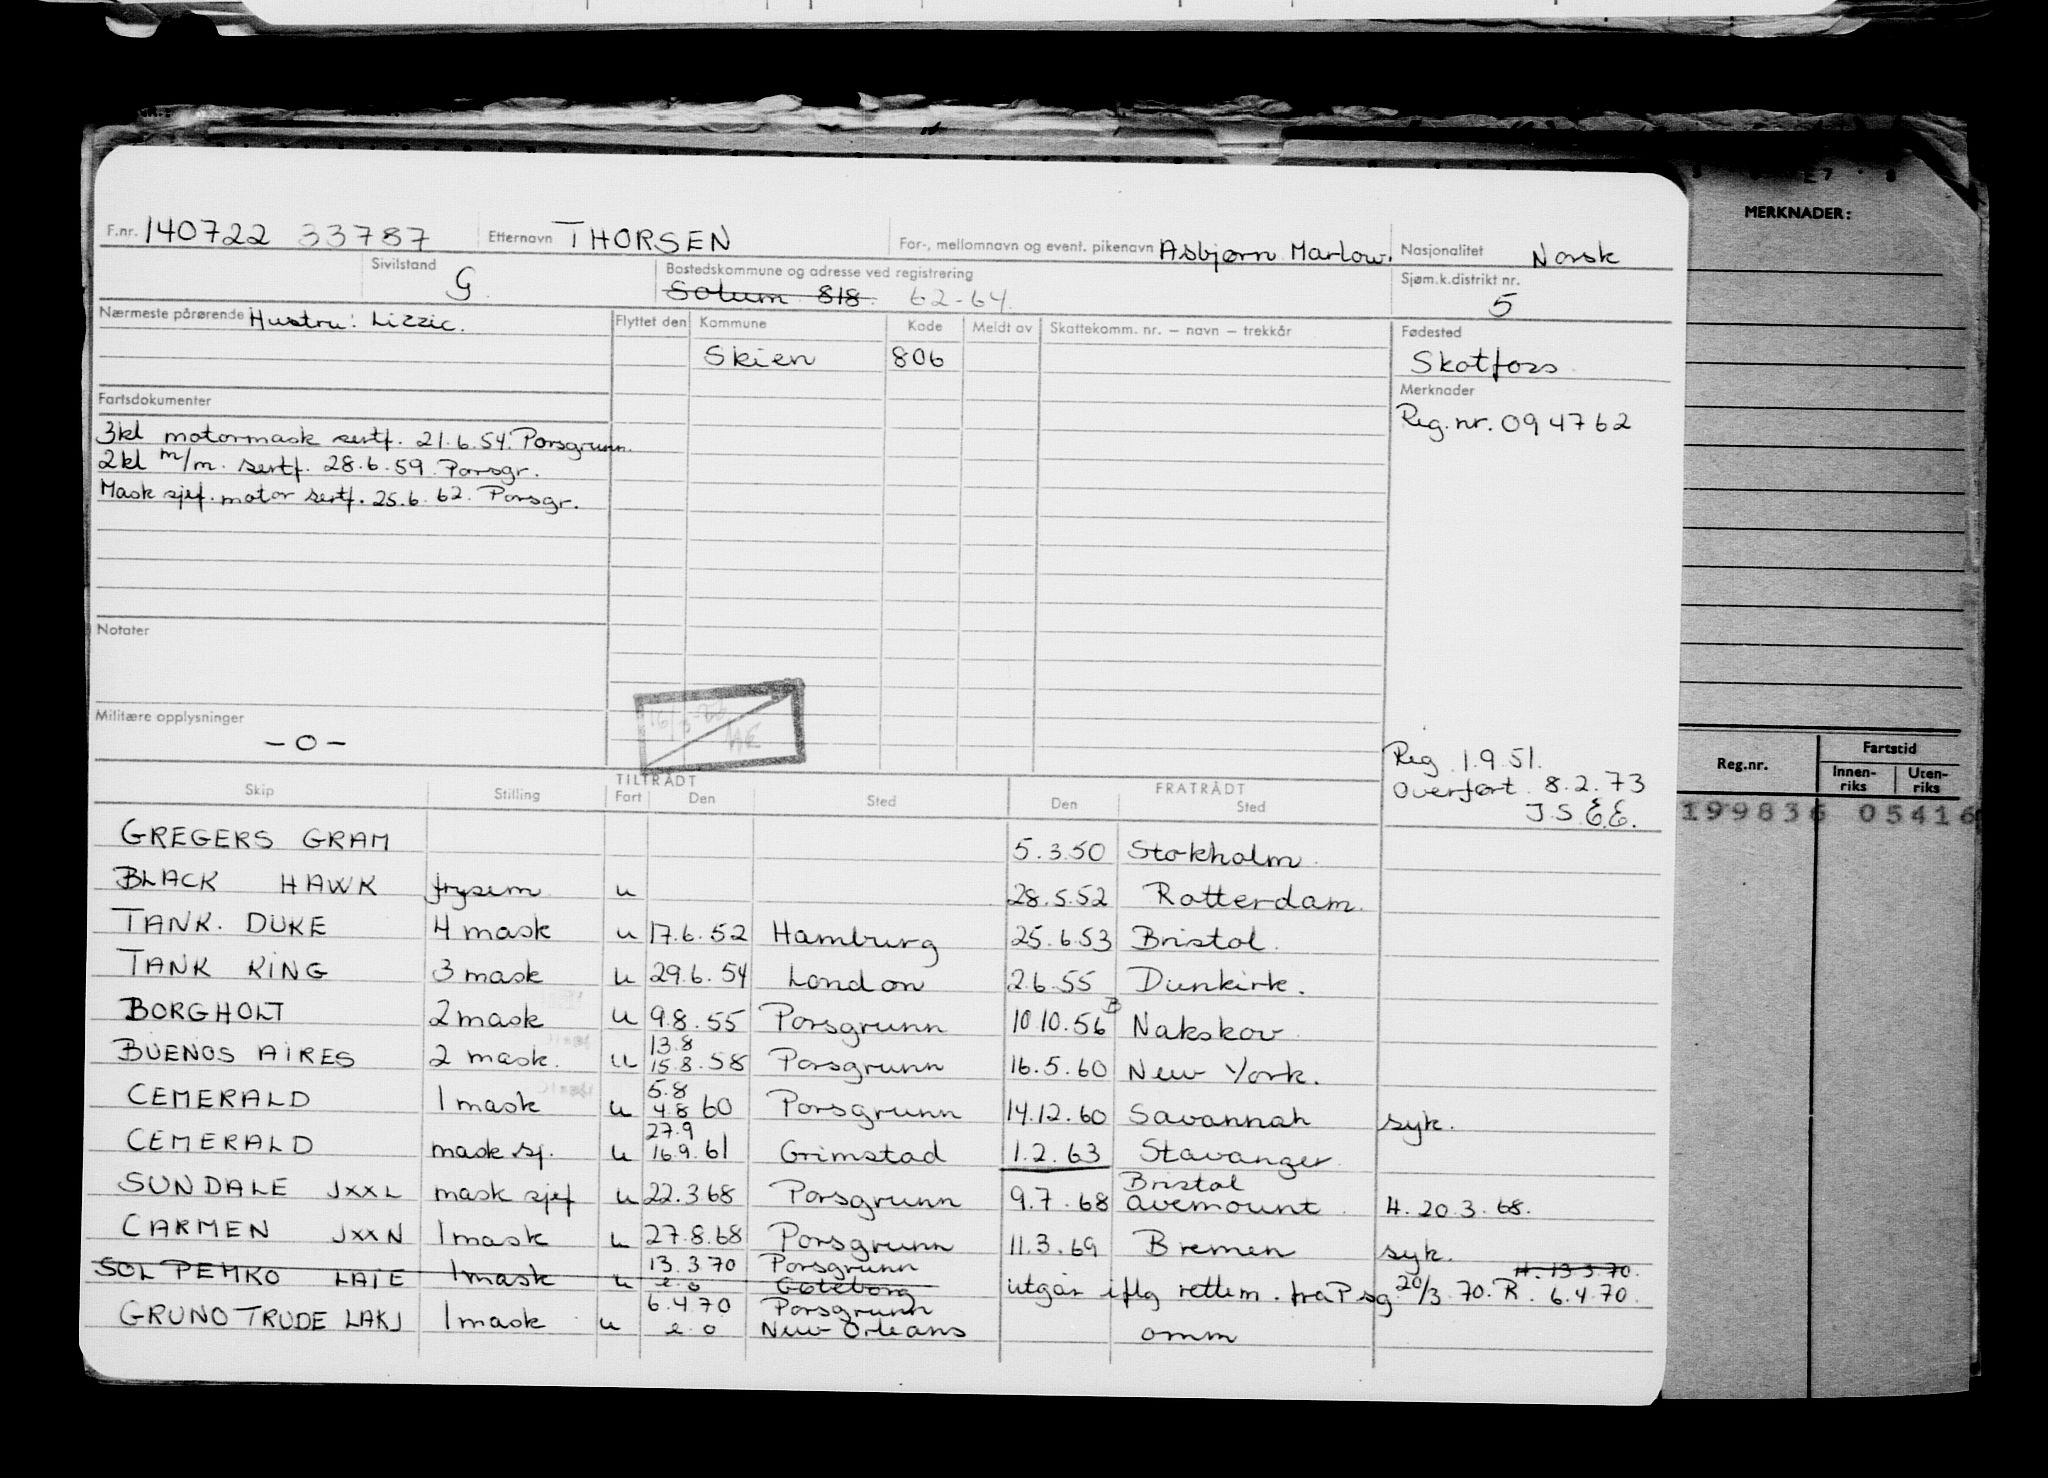 MERKNADER:
F.nr. 140722 33787 Etternavn THORSEN For-, mellomnavn og event. pikenavn Asbjørn Marlow. Nasjonalitet Norsk
Sivilstand G. Bostedskommune og adresse ved registrering Solum 818. 62-64. Sjøm.k.distrikt nr. 5
Nærmeste pårørende Hustru: Lizzie. Flyttet den Kommune Kode Meldt av Skattekomm. nr. – navn – trekkår Fødested
Skien 806 Skotfoss
Fartsdokumenter Merknader
Reg.nr. 094762
3kl motormask sertf. 21.6.54. Porsgrunn.
2kl m/m. sertf. 28.6.59 Porsgr.
Mask sjef. motor sertf. 25.6.62. Porsgr.
Notater
Militære opplysninger
-0-
Reg. 1.9.51.
Overført. 8.2.73
J.S. E.E.
Reg.nr. Fartstid
Innen-riks Uten-riks
199836 05416
TILTRÅDT FRATRÅDT
Skip Stilling Fart Den Sted Den Sted
GREGERS GRAM 5.3.50 Stokholm.
BLACK HAWK frysem u 28.5.52 Rotterdam.
TANK. DUKE 4 mask u 17.6.52 Hamburg 25.6.53 Bristol.
TANK KING 3 mask u 29.6.54 London 2.6.55 Dunkirk.
BORGHOLT 2 mask u 9.8.55 Porsgrunn 10.10.56 B Nakskov
13.8
BUENOS AIRES 2 mask. u 15.8.58 Porsgrunn 16.5.60 New York.
5.8
CEMERALD 1 mask u 4.8 60 Porsgrunn 14.12.60 Savannah syk.
27.9
CEMERALD mask sj. u 16.9.61 Grimstad 1.2.63 Stavanger
Bristol
SUNDALE JXXL mask sjef u 22.3.68 Porsgrunn 9.7.68 avemount. H. 20.3.68.
CARMEN JXXN 1 mask u 27.8.68 Porsgrunn 11.3.69 Bremen syk.
13.3.70 Porsgrunn H. 13.3.70.
SOL PEMKO LAIE 1 mask u e.o Gøteborg utgår iflg rettem. fra Psg 20/3.70. R. 6.4.70.
6.4.70 Porsgrunn
GRUNO TRUDE LAKJ 1 mask u e.o New Orleans omm